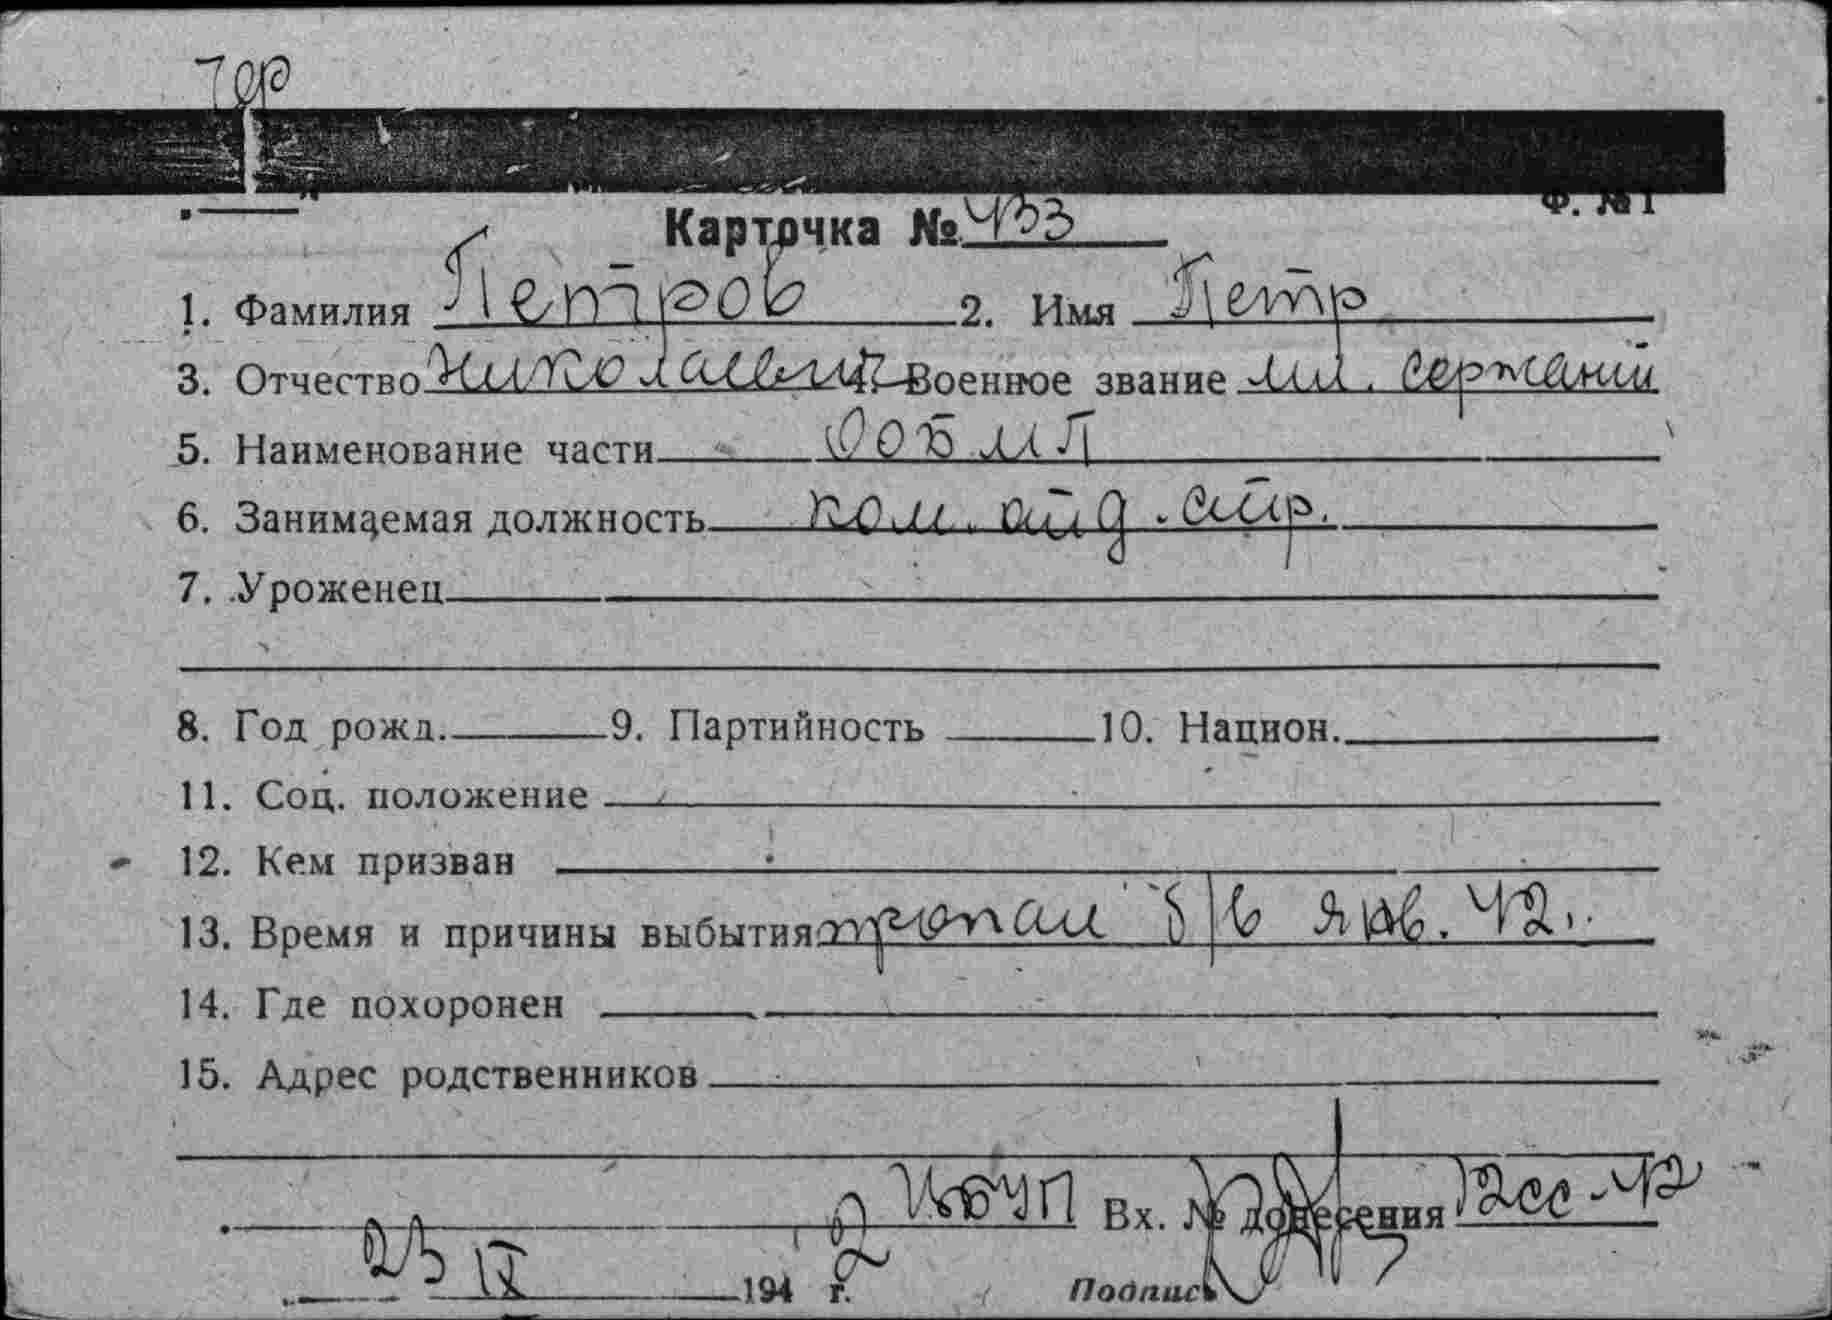 Ф. № 1
Карточка № 433
1. Фамилия Петров 2. Имя Петр
3. Отчество Николаевич Военное звание мл. сержант
5. Наименование части
6. Занимаемая должность ком. отд. стр.
7. Уроженец
8. Год рожд. 9. Партийность 10. Национ.
11. Соц. положение
12. Кем призван
13. Время и причины выбытия пропал б/в янв. 42 г.
14. Где похоронен
15. Адрес родственников
Вх. № донесения
23 IX 1942 г. Подпись